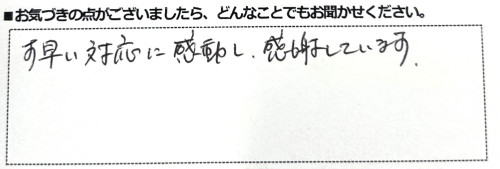 ■お気づきの点がございましたら、どんなことでもお聞かせください。
す早い対応に感動し、感謝しています。